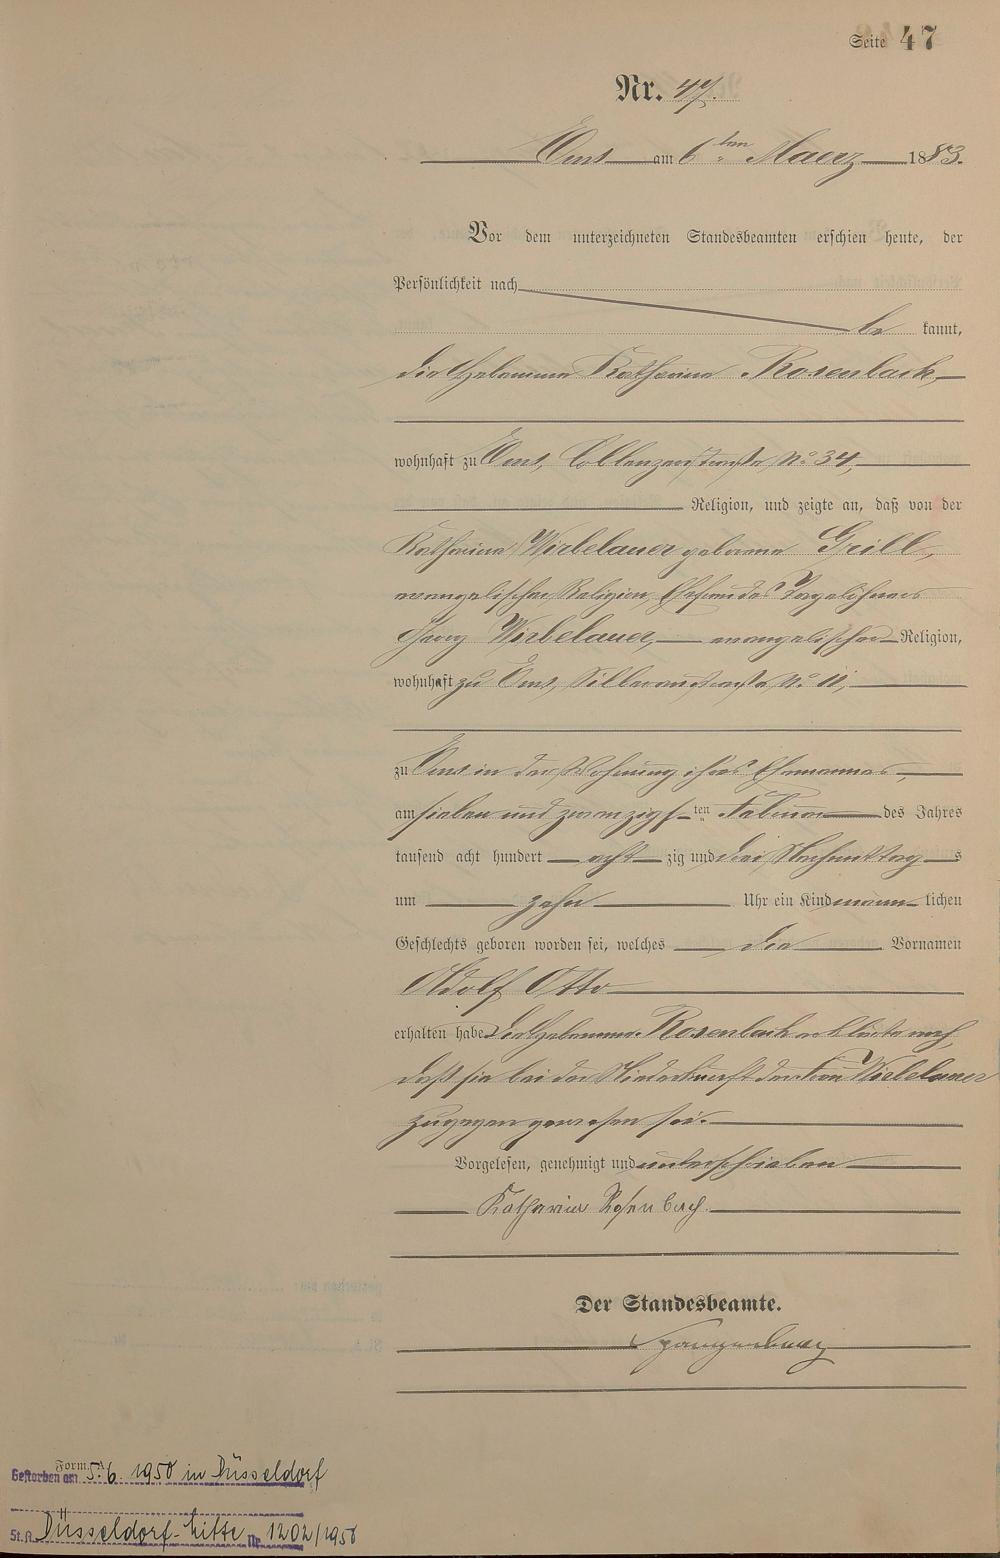 Seite 47
Nr. 47.
Ems am 6ten Maerz 1883.
Vor dem unterzeichneten Standesbeamten erschien heute, der
Persönlichkeit nach
be kannt,
die Hebamme Katharina Rosenbach
wohnhaft zu Ems, Coblenzerstraße No 34,
Religion, und zeigte an, daß von der
Katharina Wirbelauer geborene Grill,
evangelischer Religion, Ehefrau des Tagelöhners
Georg Wirbelauer, evangelischer Religion,
wohnhaft zu Ems, Silberaustraße No 11,
zu Ems in der Wohnung ihres Ehemannes,
am sieben und zwanzigsten Februar des Jahres
tausend acht hundert acht zig und drei Nachmittags
um zehn Uhr ein Kind männlichen
Geschlechts geboren worden sei, welches die Vornamen
Adolf Otto
erhalten habe. Die Hebamme Rosenbach erklärte noch,
daß sie bei der Niederkunft der Frau Wirbelauer
zugegen gewesen sei.
Vorgelesen, genehmigt und unterschrieben
Katharina Rosenbach.
Der Standesbeamte.
Spangenberg
Form. A
Gestorben am 5.6. 1950 in Düsseldorf
St.A. Düsseldorf-Mitte Nr. 1202/1950